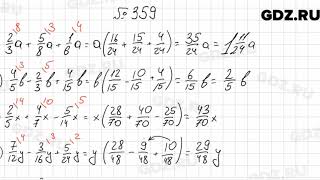 GDZ.RU
№ 359
2/3 a + 5/8 a + 1/6 a = a (16/24 + 15/24 + 4/24) = 35/24 a = 1 11/24 a
) 4/5 b - 2/3 b + 4/15 b = b (12/15 - 10/15 + 4/15) = 6/15 b = 2/5 b
2/5 x + 4/7 x - 5/14 x = x (28/70 + 40/70 - 25/70) = 43/70 x
) 7/12 y - 3/16 y + 5/24 y = y (28/48 - 9/48 + 10/48) = 29/48 y
GDZ.RU